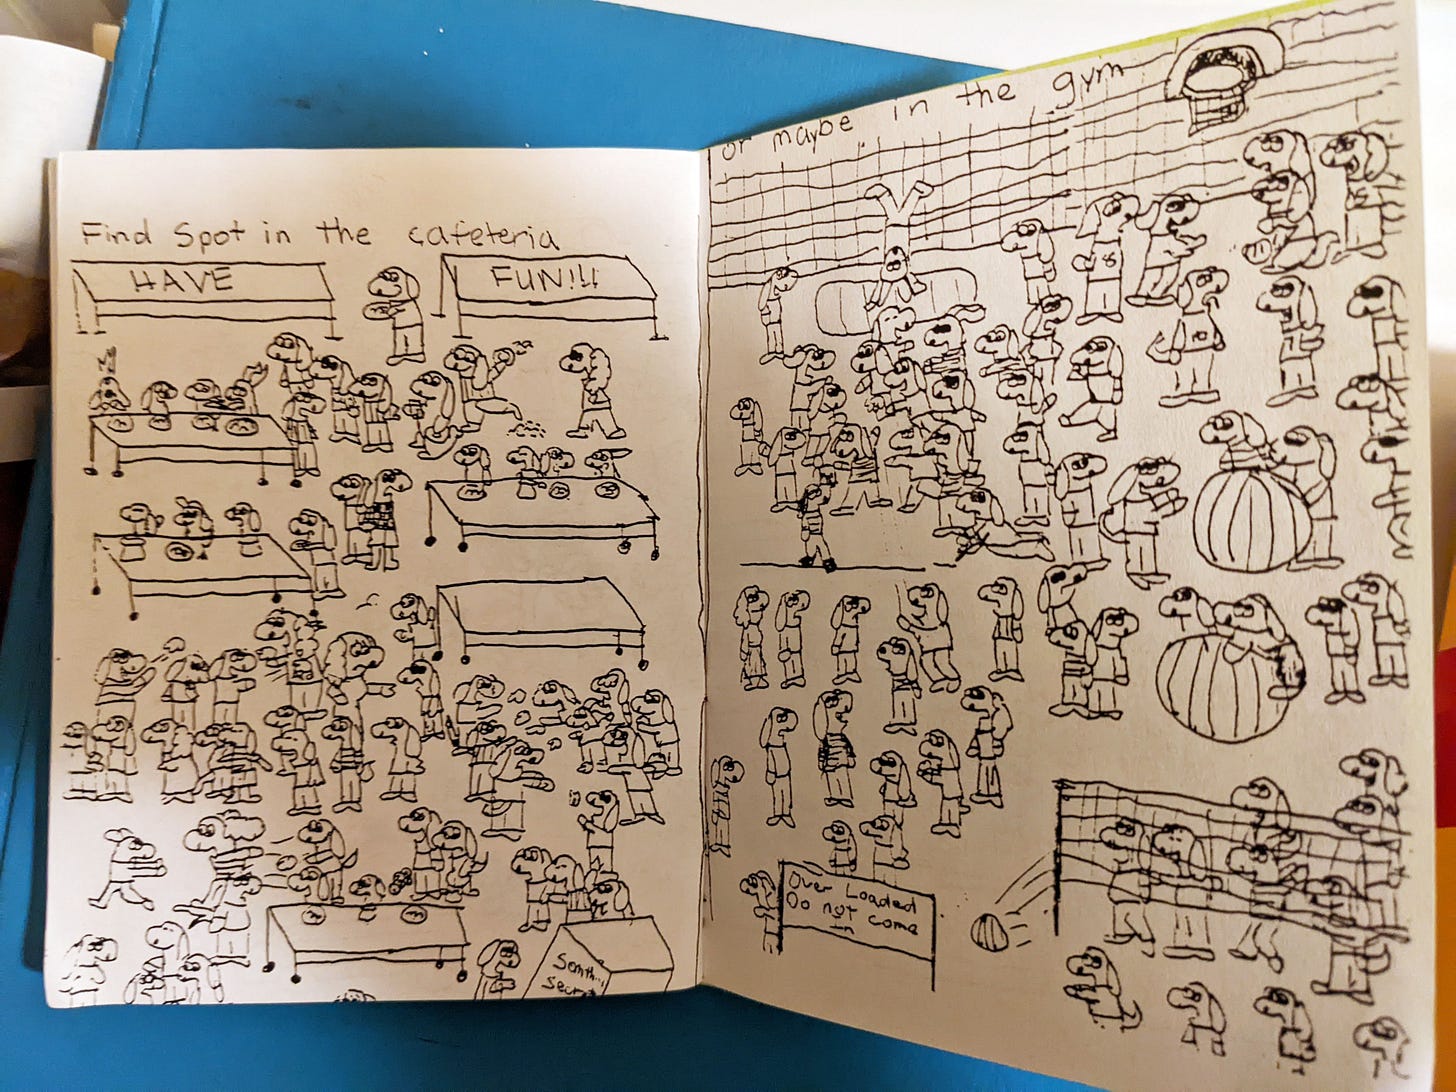 Find Spot in the cafeteria
HAVE
FUN!!!
or maybe in the gym
Over Loaded
Do not come
in